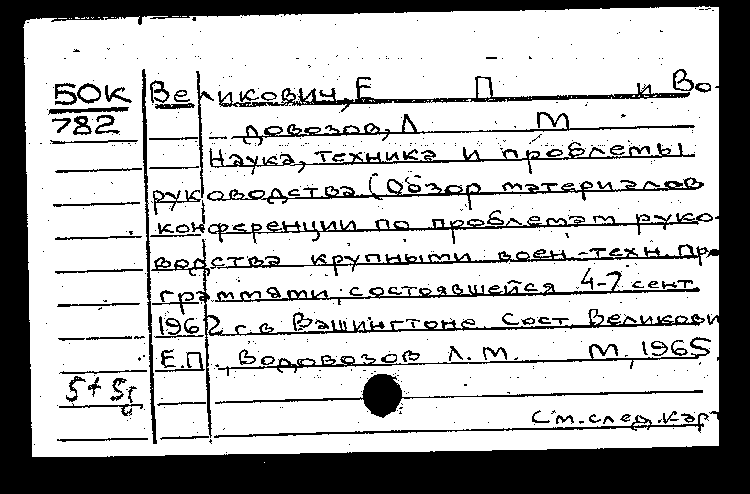 50К Великович, Е П и Во-
782 довозов, Л М
Наука, техника и проблемы
руководства (Обзор материалов
конференции по проблемам руко-
водства крупными воен.-техн. про-
граммами, состоявшейся 4-7 сент.
1962 г. в Вашингтоне. Сост. Великови
Е.П., Водовозов Л.М. М., 1965.
См. след. карт